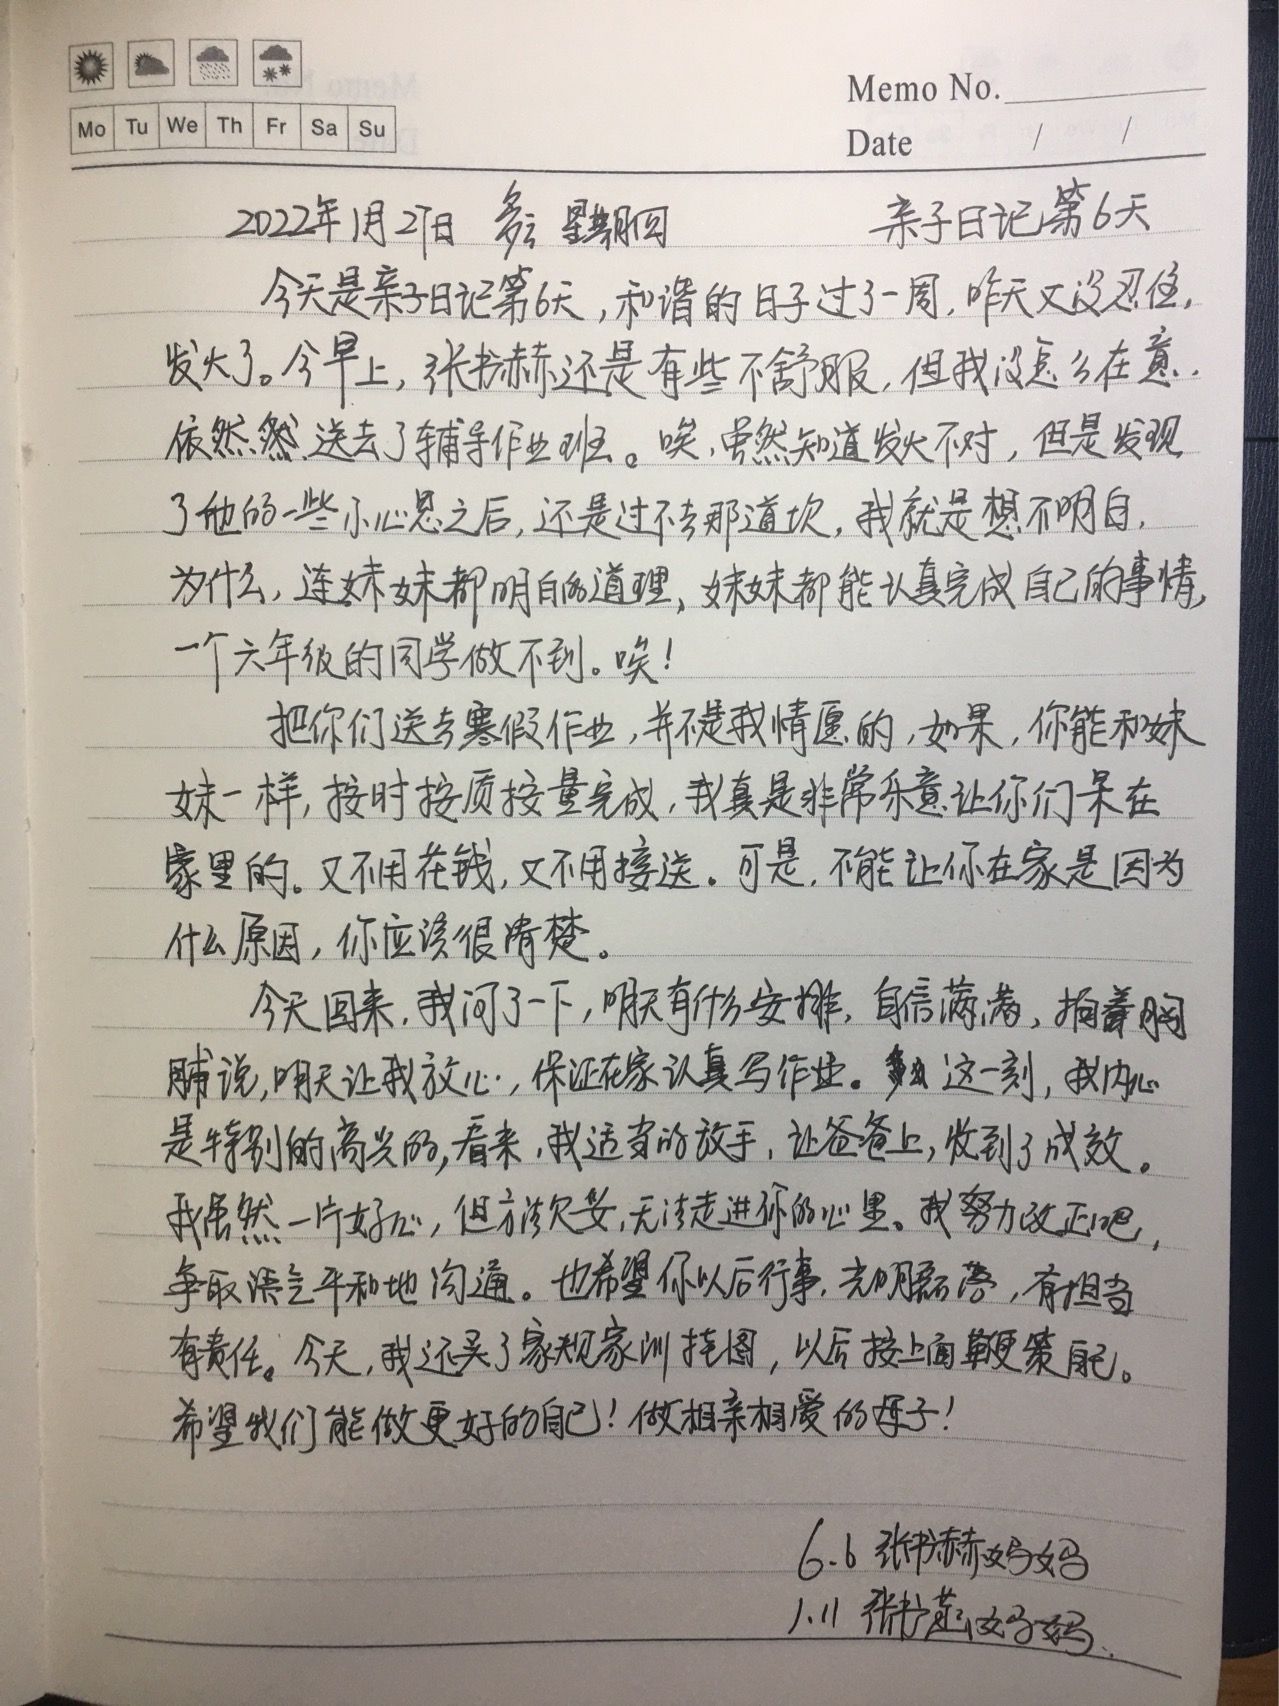 Mo Tu We Th Fr Sa Su
Memo No.
Date / /
2022年1月27日 多云 星期四 亲子日记第6天
今天是亲子日记第6天,和谐的日子过了一周,昨天又没忍住,
发火了。今早上,张书赫还是有些不舒服,但我没怎么在意.
依然然送去了辅导作业班。唉,虽然知道发火不对,但是发现
了他的一些小心思之后,还是过不去那道坎,我就是想不明白,
为什么,连妹妹都明白的道理,妹妹都能认真完成自己的事情,
一个六年级的同学做不到。唉!
把你们送去寒假作业,并不是我情愿的,如果,你能和妹
妹一样,按时按质按量完成,我真是非常乐意让你们呆在
家里的。又不用花钱,又不用接送。可是,不能让你在家是因为
什么原因,你应该很清楚。
今天回来,我问了一下,明天有什么安排,自信满满,拍着胸
脯说,明天让我放心,保证在家认真写作业。这一刻,我内心
是特别的高兴的,看来,我适当的放手,让爸爸上,收到了成效。
我虽然一片好心,但方法欠妥,无法走进你的心里。我努力改正吧,
争取语气平和地沟通。也希望你以后行事,光明磊落,有担当
有责任。今天,我还买了家规家训挂图,以后按上面鞭策自己。
希望我们能做更好的自己!做相亲相爱的母子!
6.6 张书赫妈妈
1.11 张书妈妈